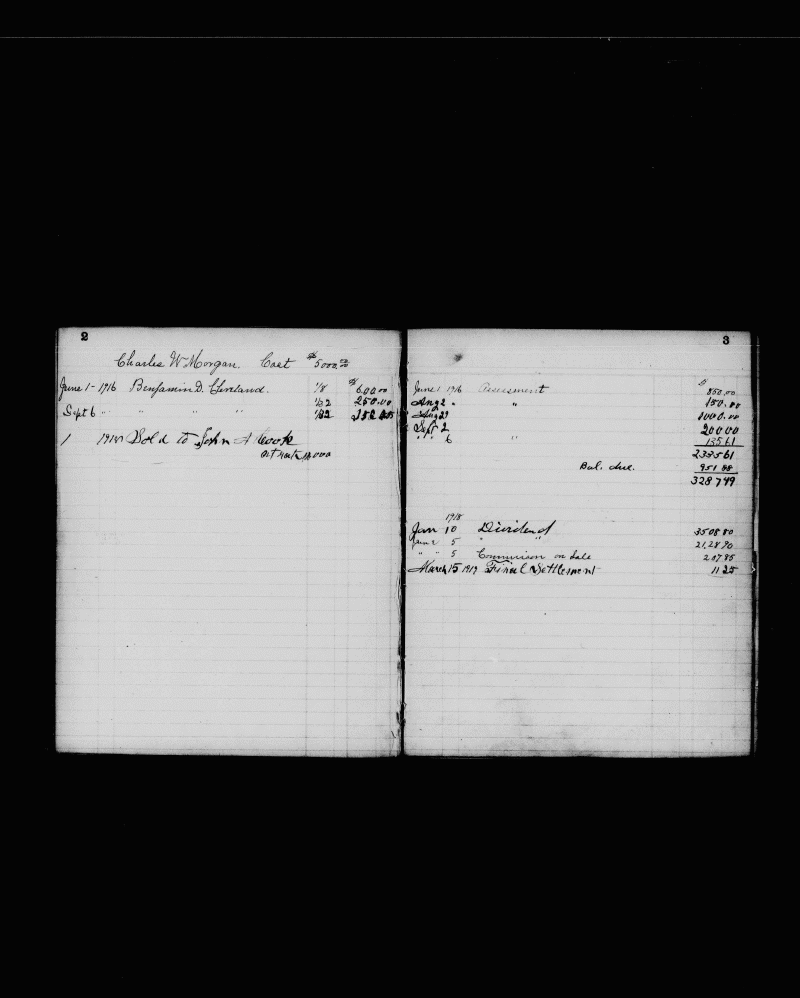 2
Charles W Morgan. Cost $5000.00
June 1 - 1916 Benjamin D. Cleveland. 1/8 $ 600.00
1/32 250.00
Sept 6 " " " " 1/32
1 Sold to John A Cook
at rate
3
June 1 1916 Assessment $ 850.00
Aug 2 " " 150.00
Aug 21 1000.00
Sept 2 200.00
" " 6 " 135 61
2335 61
Bal. due. 951 88
3287 49
1918
Jan 10 Dividend 3508 80
June 5 " " 2128 70
" " 5 Commission on Sale 207 85
March 15 1919 Final Settlement 11 25